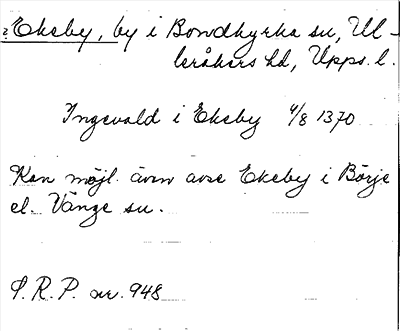 ? Ekeby, by i Bondkyrka sn, Ul-
leråkers hd, Upps. l.
Ingevald i Ekeby 4/8 1370
Kan möjl. även avse Ekeby i Börje
el. Vänge sn.
S.R.P. nr. 948